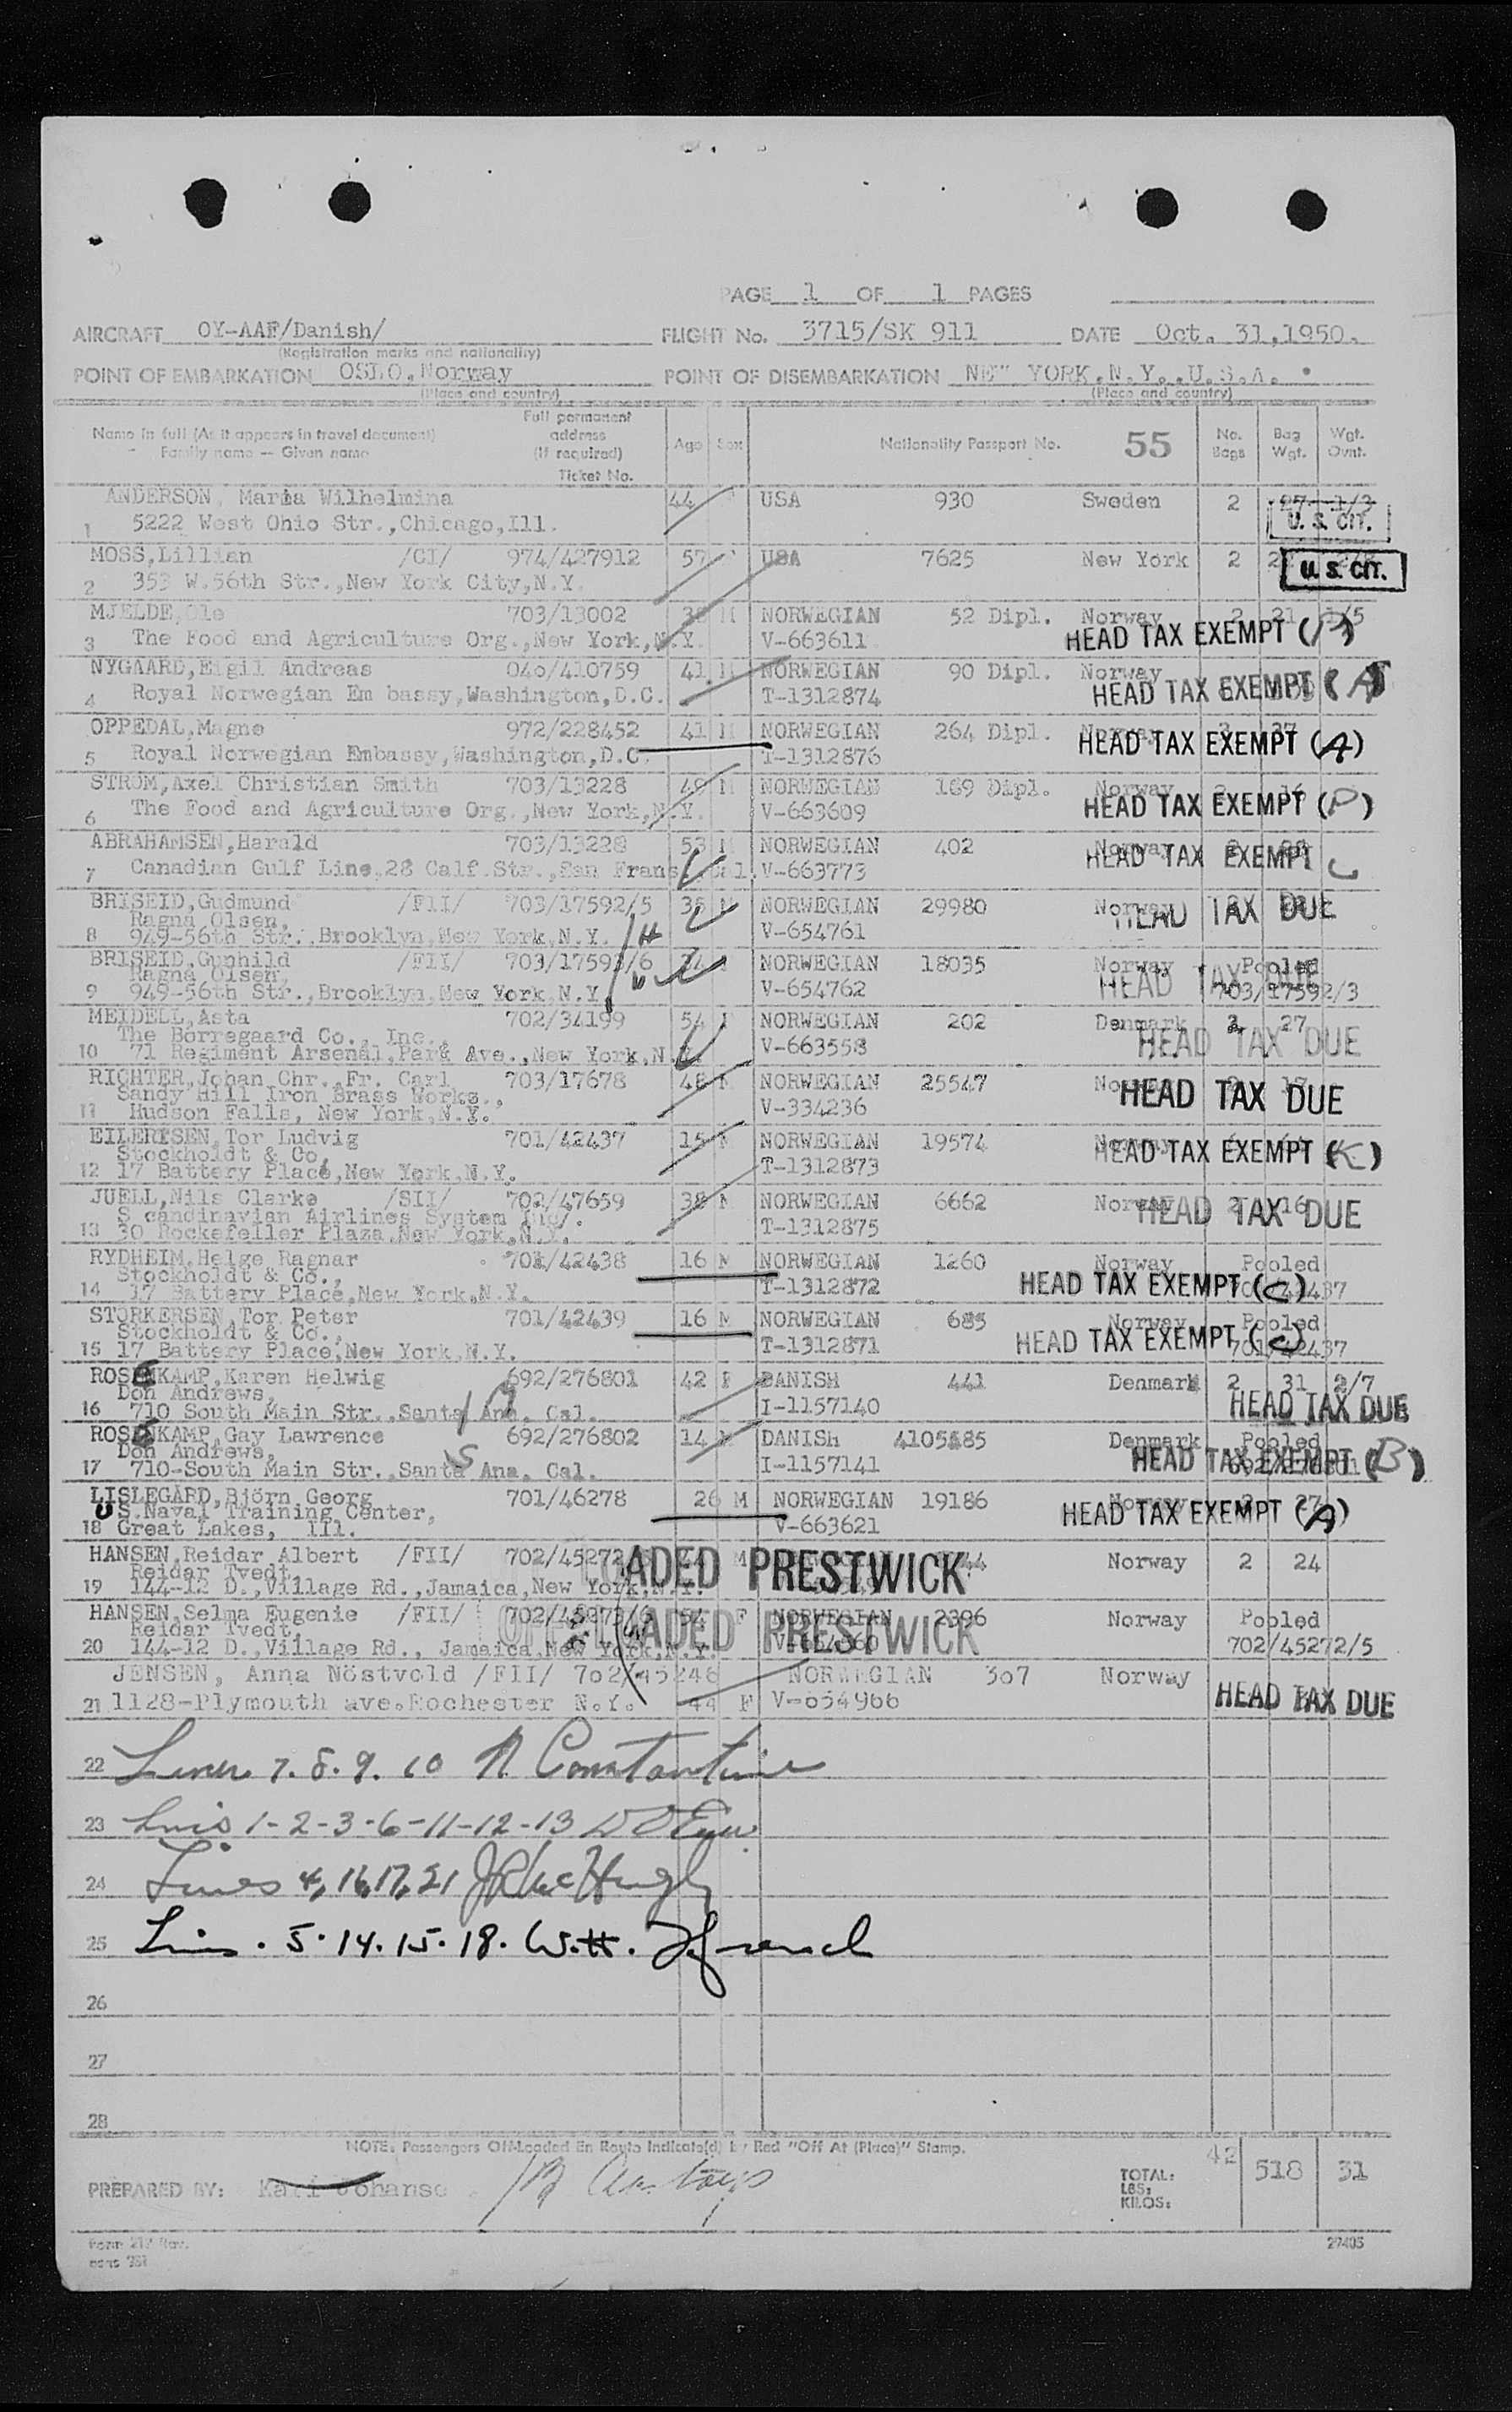 PAGE 1 OF 1 PAGES
AIRCRAFT OY-AAF/Danish/ FLIGHT No. 3715/SK 911 DATE Oct. 31,1950.
(Registration marks and nationality)
POINT OF EMBARKATION OSLO,Norway POINT OF DISEMBARKATION NEW YORK,N.Y.,U.S.A.
(Place and country) (Place and country)
Name in full (As it appears in travel document) Full permanent address (If required) Age Sex Nationality Passport No. 55 No. Bags Bag Wgt. Wgt. Ovnt.
Family name -- Given name Ticket No.
ANDERSON, Maria Wilhelmina 44 USA 930 Sweden 2 27 1/3
1 5222 West Ohio Str.,Chicago,Ill. U. S. CIT.
MOSS,Lillian /CI/ 974/427912 57 USA 7625 New York 2
2 353 W.56th Str.,New York City,N.Y. U. S. CIT.
MJELDE,Ole 703/13002 M NORWEGIAN 52 Dipl. Norway 2 21 1/5
3 The Food and Agriculture Org.,New York,N.Y. V-663611 HEAD TAX EXEMPT
NYGAARD,Eigil Andreas 040/410759 41 M NORWEGIAN 90 Dipl. Norway
4 Royal Norwegian Em bassy,Washington,D.C. T-1312874 HEAD TAX EXEMPT (A)
OPPEDAL,Magne 972/228452 41 M NORWEGIAN 264 Dipl. Norway 3 37
5 Royal Norwegian Embassy,Washington,D.C. T-1312876 HEAD TAX EXEMPT (A)
STROM,Axel Christian Smith 703/13228 49 M NORWEGIAN 169 Dipl. Norway
6 The Food and Agriculture Org.,New York,N.Y. V-663609 HEAD TAX EXEMPT
ABRAHAMSEN,Harald 703/13228 53 M NORWEGIAN 402 Norway
7 Canadian Gulf Line,28 Calf.Str.,San Frans, Cal. V-663773 HEAD TAX EXEMPT C
BRISEID,Gudmund /FII/ 703/17592/5 M NORWEGIAN 29980 Norway
Ragna Olsen, HEAD TAX DUE
8 949-56th Str.,Brooklyn,New York,N.Y. V-654761
BRISEID,Gunhild /FII/ 703/17592/6 NORWEGIAN 18035 Norway Pooled
Ragna Olsen, HEAD TAX DUE
9 949-56th Str.,Brooklyn,New York,N.Y. V-654762 703/17592/3
MEIDELL,Asta 702/34199 54 F NORWEGIAN 202 Denmark 27
The Borregaard Co., Inc., HEAD TAX DUE
10 71 Regiment Arsenal,Park Ave.,New York,N.Y. V-663558
RICHTER,Johan Chr.,Fr. Carl 703/17678 48 M NORWEGIAN 25547 Norway 17
Sandy Hill Iron Brass Works., HEAD TAX DUE
11 Hudson Falls, New York,N.Y. V-334236
EILERTSEN,Tor Ludvig 701/42437 15 M NORWEGIAN 19574 Norway
Stockholdt & Co, HEAD TAX EXEMPT
12 17 Battery Place,New York,N.Y. T-1312873
JUELL,Nils Clarke /SII/ 702/47659 38 M NORWEGIAN 6662 Norway 2 16
S candinavian Airlines System Inc/. HEAD TAX DUE
13 30 Rockefeller Plaza,New York,N.Y. T-1312875
RYDHEIM,Helge Ragnar 701/42438 16 M NORWEGIAN 1260 Norway Pooled
Stockholdt & Co., HEAD TAX EXEMPT (C)
14 17 Battery Place,New York,N.Y. T-1312872
STORKERSEN,Tor Peter 701/42439 16 M NORWEGIAN 685 Norway Pooled
Stockholdt & Co., HEAD TAX EXEMPT (C)
15 17 Battery Place,New York,N.Y. T-1312871 701/42437
ROSENKAMP,Karen Helwig 692/276801 42 F DANISH 441 Denmark 2 31 2/7
Don Andrews, HEAD TAX DUE
16 710 South Main Str.,Santa Ana. Cal. I-1157140
ROSENKAMP,Gay Lawrence 692/276802 14 M DANISH 4105885 Denmark Pooled
Don Andrews, HEAD TAX EXEMPT (B)
17 710-South Main Str.,Santa Ana. Cal. I-1157141
LISLEGÅRD,Björn Georg 701/46278 26 M NORWEGIAN 19186 Norway 27
US.Naval Training Center, HEAD TAX EXEMPT (A)
18 Great Lakes, Ill. V-663621
HANSEN,Reidar Albert /FII/ 702/45272 M Norway 2 24
Reidar Tvedt, LOADED PRESTWICK
19 144-12 D.,Village Rd.,Jamaica,New York,N.Y.
HANSEN,Selma Eugenie /FII/ 702/45273/6 54 F NORWEGIAN 2396 Norway Pooled
Reidar Tvedt, OFF-LOADED PRESTWICK
20 144-12 D.,Village Rd., Jamaica,New York,N.Y. 702/45272/5
JENSEN, Anna Nöstvold /FII/ 702/45246 NORWEGIAN 307 Norway
21 1128-Plymouth ave.Rochester N.Y. 44 F V-654966 HEAD TAX DUE
22 Lines 7. 8. 9. 10 N Constantine
23 Lines 1-2-3-6-11-12-13
24 Lines 4, 16, 17, 21 J McHugh
25 Lines . 5. 14. 15. 18. W.H. French
26
27
28
NOTE: Passengers Off-Loaded En Route Indicate(d) by Red "Off At (Place)" Stamp.
PREPARED BY: Kari Johanse TOTAL: 42 518 31
LBS:
KILOS:
Form 217 Rev. 27405